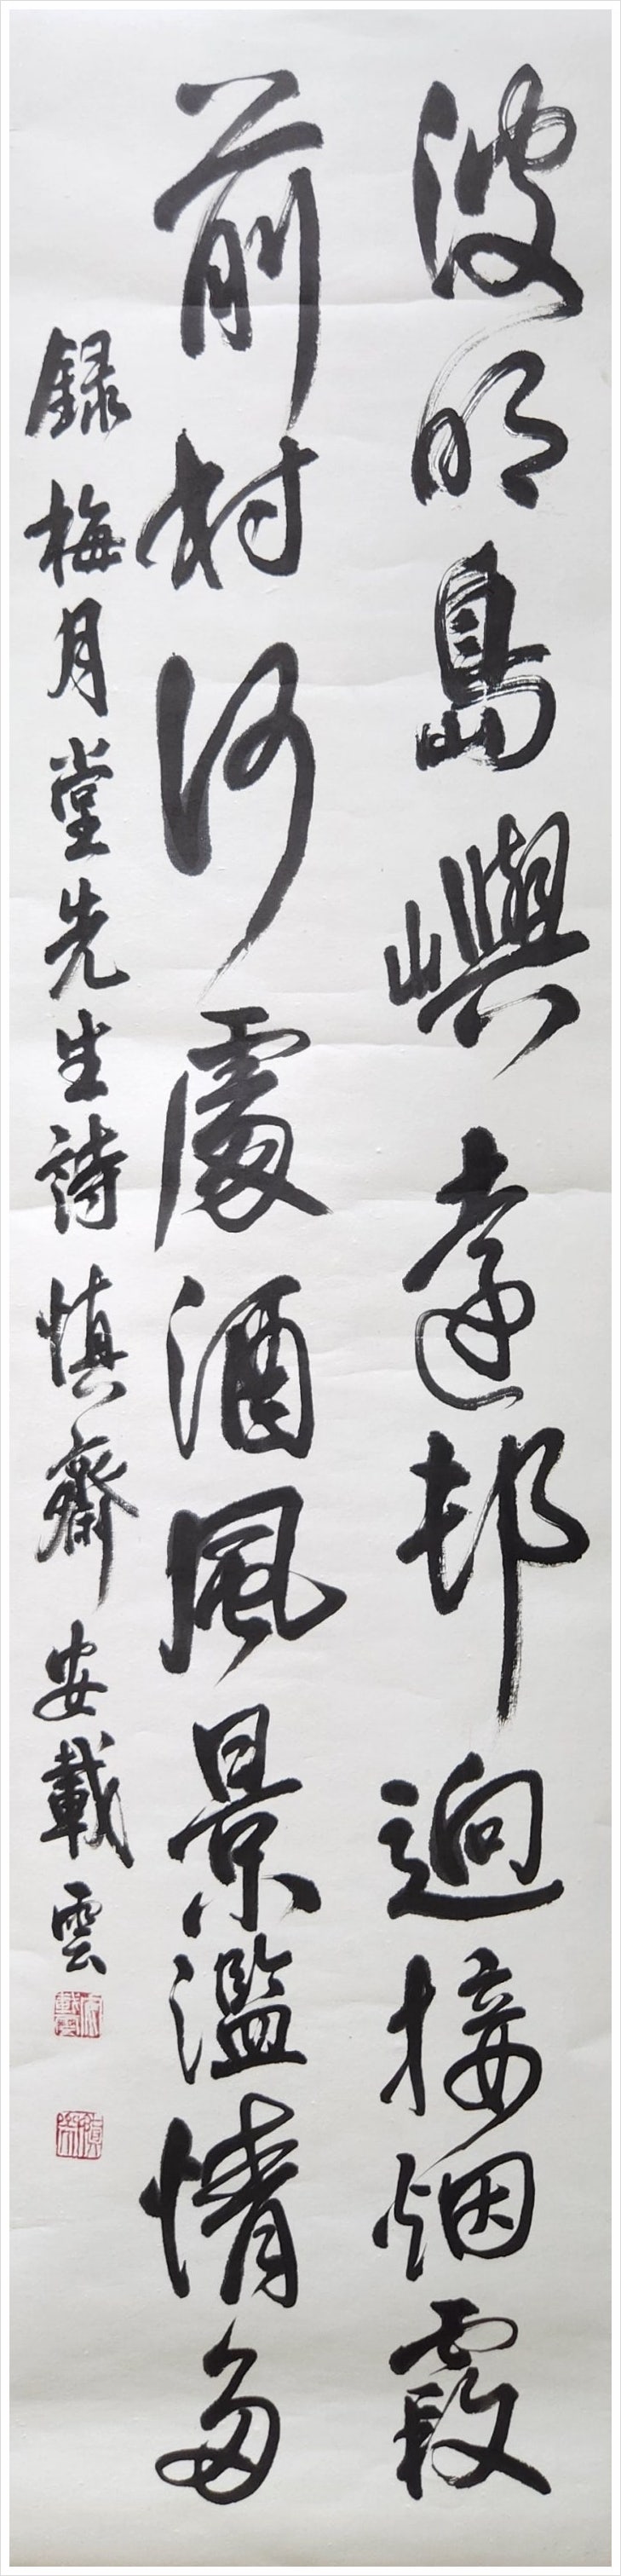 波明島嶼遠邨迥接烟霞
前村何處酒風景濫情多
録梅月堂先生詩 慎齋 安載雲